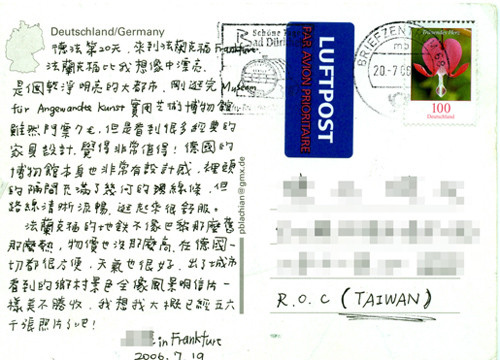 Deutschland/Germany
德法第20天，來到法蘭克福Frankfurt.
法蘭克福比我想像中漂亮.
是個乾淨明亮的大都市，剛逛完Museum
für Angewandte Kunst 實用藝術博物館
雖然門票7€，但是看到很多經典的
家具設計，覺得非常值得！德國的
博物館本身也非常有設計感，裡頭
的隔間充滿了幾何的線條，但
路線清晰流暢，逛起來很舒服。
法蘭克福的地鐵不像巴黎那麼舊
那麼熱，物價也沒那麼高，在德國一
切都很方便，天氣也很好，出了城市
看到的鄉村景色全像風景明信片一
樣美不勝收，我想我大概已經五六
千張照片了吧！
in Frankfurt
2006.7.19
pblachian@gmx.de
Schöne
Bad Dürkheim
LUFTPOST
PAR AVION PRIORITAIRE
BRIEFZEN
20-7.06
100
Deutschland
R.O.C (TAIWAN)